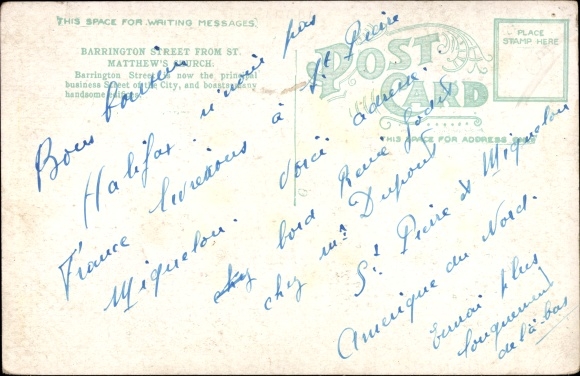 THIS SPACE FOR WRITING MESSAGES.
BARRINGTON STREET FROM ST.
MATTHEW'S CHURCH.
Barrington Street is now the principal
business Street of the City, and boasts many
handsome edifices.
POST CARD
THIS SPACE FOR ADDRESS ONLY
PLACE
STAMP HERE
Bons baisers
Halifax n'irais pas
France livraisons à St Pierre
Miquelon. Voici adresse.
bord René Godet
chez Mr Dupont
St Pierre & Miquelon
Amérique du Nord.
Ecrirai plus
longuement
de là-bas